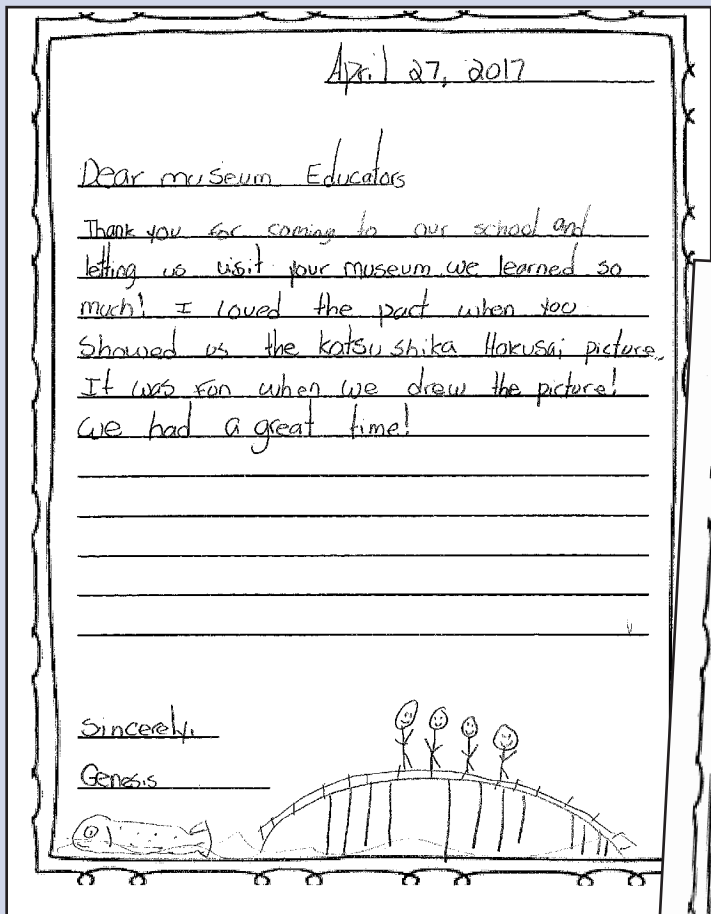 April 27, 2017
Dear museum Educators
Thank you for coming to our school and
letting us visit your museum we learned so
much! I loved the part when you
Showed us the katsushika Hokusai picture.
It was fun when we drew the picture!
we had a great time!
Sincerely,
Genesis